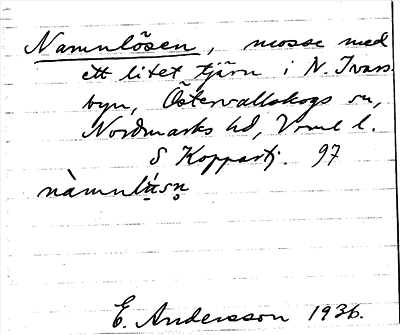 Namnlösen, mosse med
ett litet tjärn i N. Ivars-
byn, Östervallskogs sn,
Nordmarks hd, Vrml l.
S Koppartj. 97
nàmnlı̣́sn̥
E. Andersson 1936.